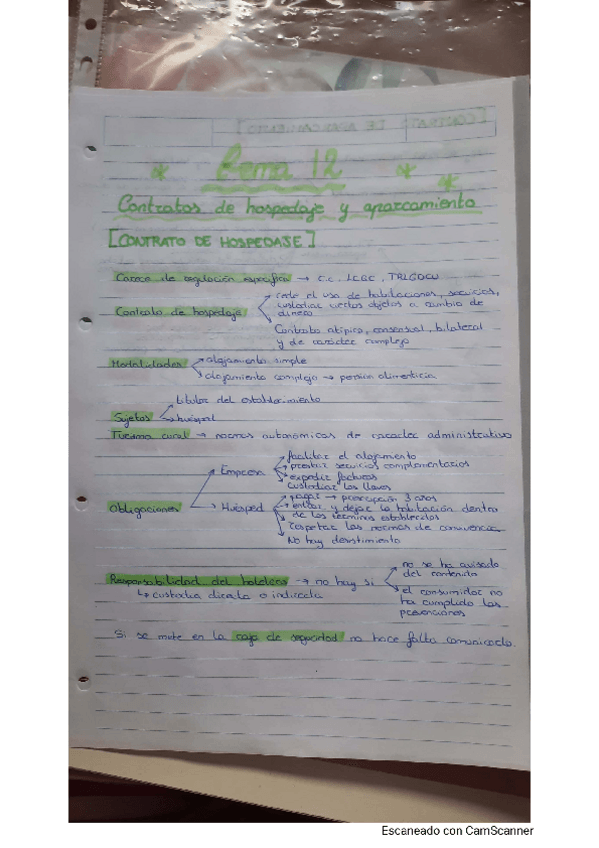 [CONTRATO DE APARCAMIENTO]
Tema 12
Contratos de hospedaje y aparcamiento
[CONTRATO DE HOSPEDAJE]
Carece de regulación específica → C.C, LCGC, TRLGDCU
Contrato de hospedaje
cede el uso de habitaciones, servicios,
custodiar ciertos objetos a cambio de
dinero
Contrato atípico, consensual, bilateral
y de carácter complejo
Modalidades
alojamiento simple
alojamiento complejo → pensión alimenticia
Sujetos
titular del establecimiento
huésped
Turismo rural → normas autonómicas de carácter administrativo
Obligaciones
Empresa
facilitar el alojamiento
prestar servicios complementarios
expedir facturas
custodiar las llaves
Huésped
pagar → prescripción 3 años
entrar y dejar la habitación dentro
de los términos establecidos
respetar las normas de convivencia
No hay desistimiento
Responsabilidad del hotelero → no hay si
↳ custodia directa o indirecta
no se ha avisado
del contenido
el consumidor no
ha cumplido las
prevenciones
Si se mete en la caja de seguridad no hace falta comunicarlo.
Escaneado con CamScanner